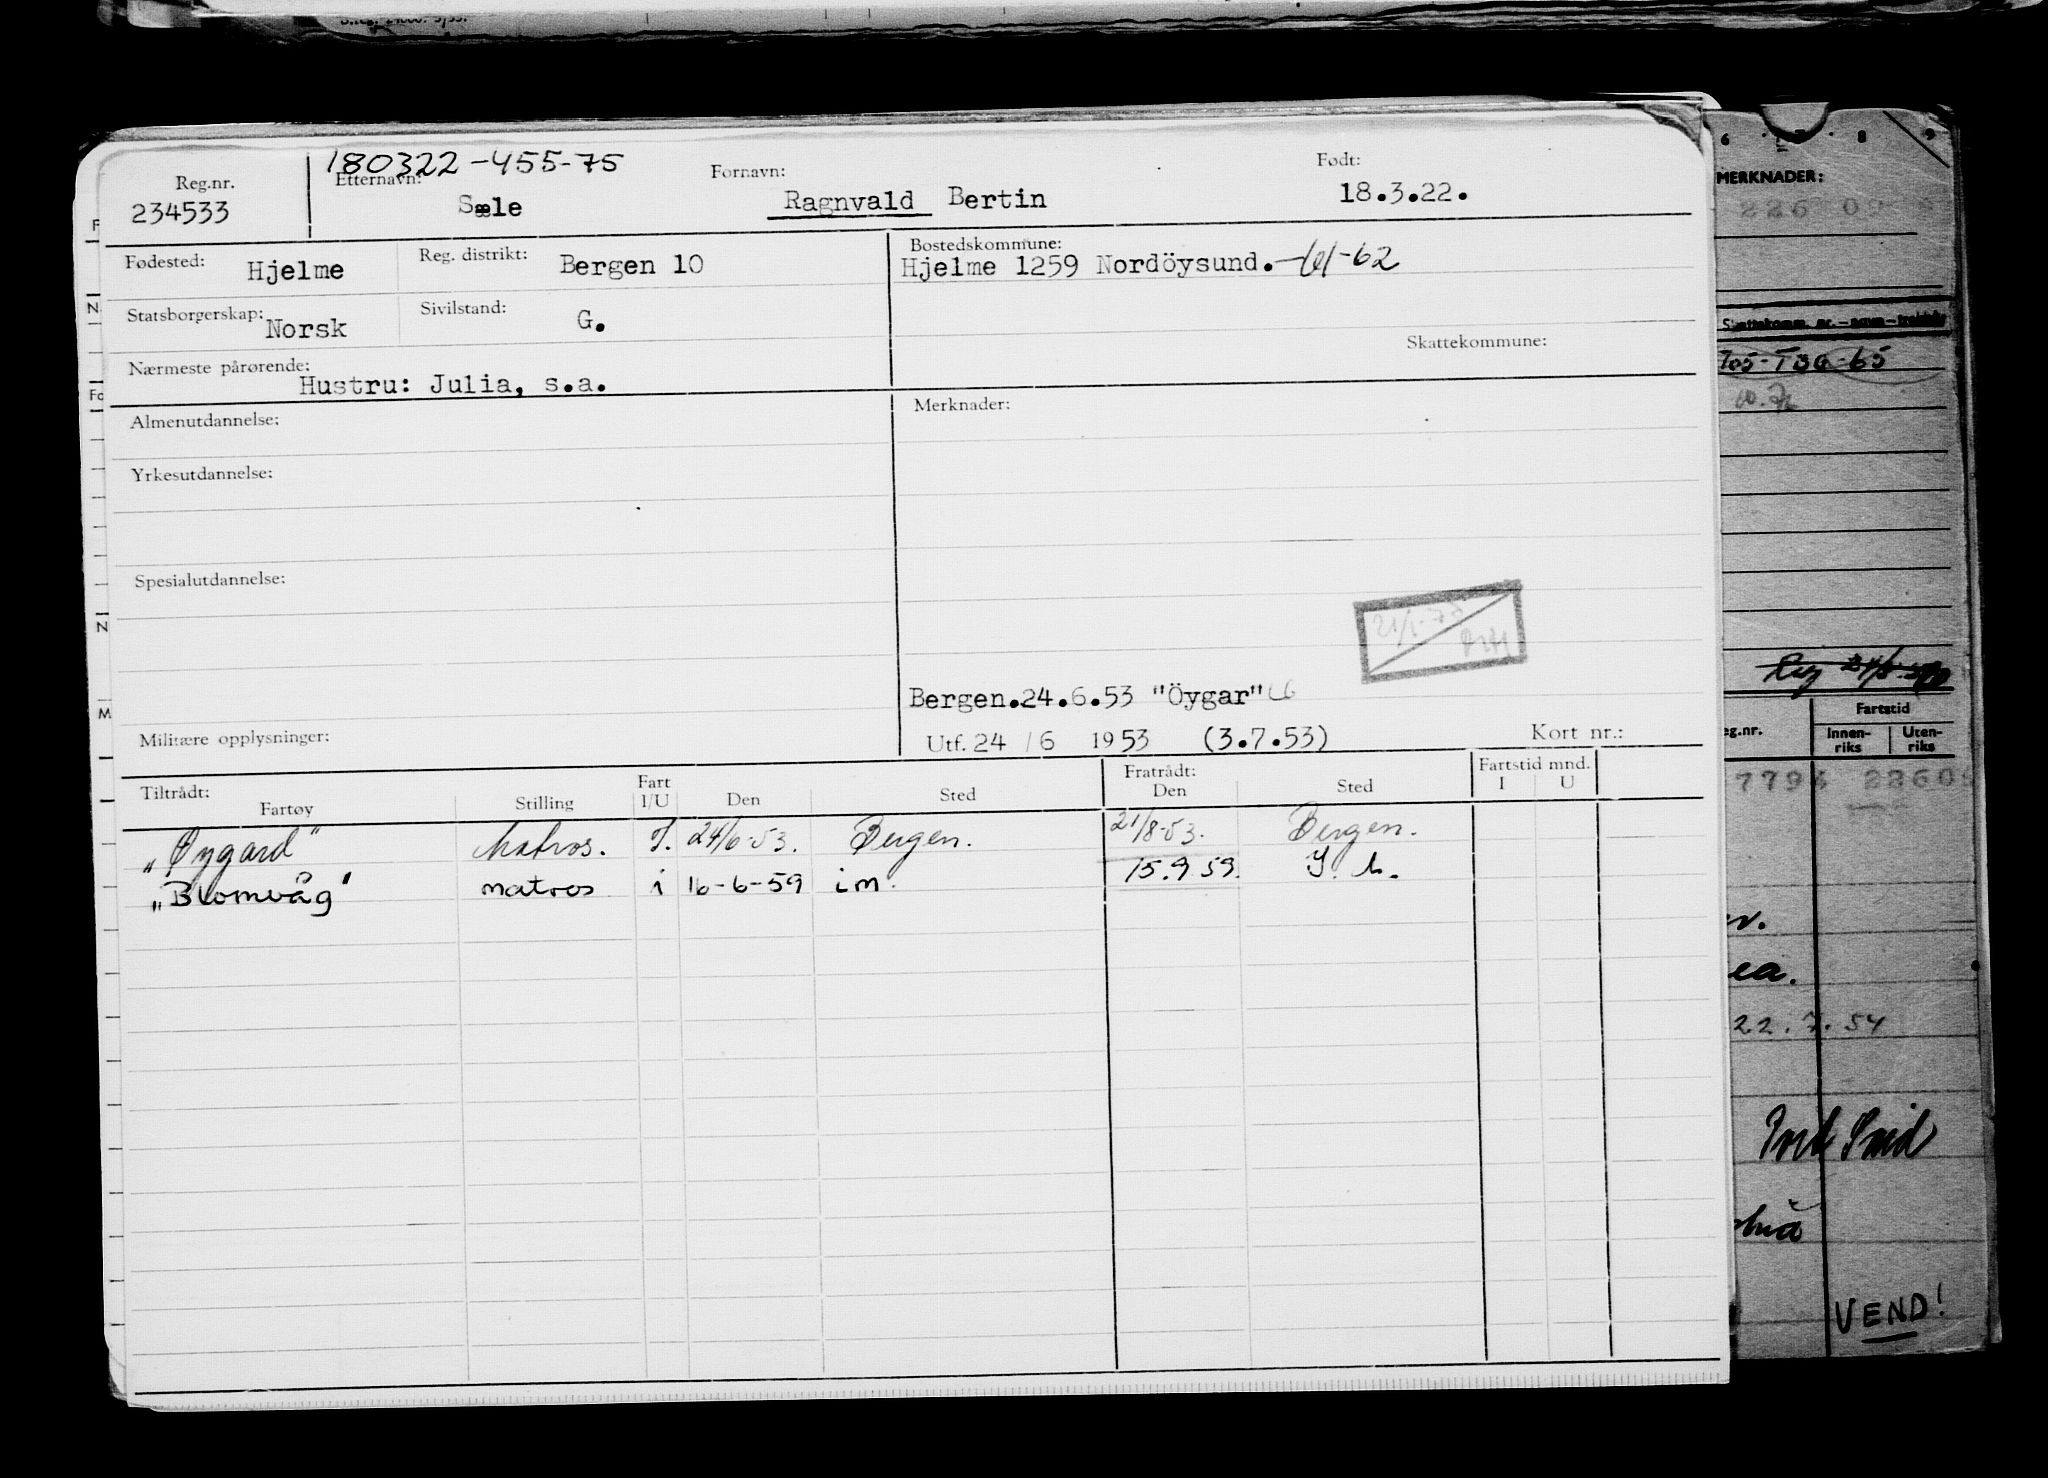 180322-455-75
Reg.nr. Etternavn: Fornavn: Født:
234533 Sæle Ragnvald Bertin 18.3.22.
Fødested: Hjelme Reg. distrikt: Bergen 10 Bostedskommune:
Hjelme 1259 Nordöysund.-61-62
Statsborgerskap: Norsk Sivilstand: G.
Skattekommune:
Nærmeste pårørende:
Hustru: Julia, s.a.
Almenutdannelse: Merknader:
Yrkesutdannelse:
Spesialutdannelse:
Bergen.24.6.53 "Öygar"
Militære opplysninger: Utf. 24 / 6 1953 (3.7.53) Kort nr.:
Tiltrådt: Fart Fratrådt: Fartstid mnd.
Fartøy Stilling I/U Den Sted Den Sted I U
„Øygard" Matros. I. 24/6-53. Bergen. 21/8-53. Bergen.
„Blomvåg" matros i 16-6-59 im. 15.9.59.
6 7 8 9
MERKNADER:
226 09
Skattekomm. nr.
T36-65
Fartstid
eg.nr. Innen-riks Uten-riks
779 2260
ea.
22.7.54
VEND!